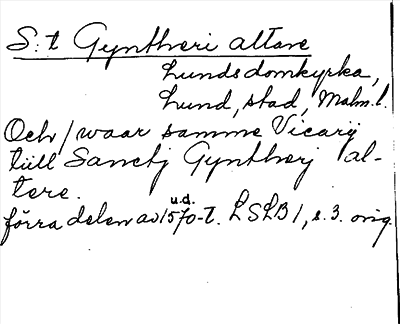 S:t Gyntheri altare
Lunds domkyrka,
Lund, stad, Malm. l.
Och / waar samme Vicarij
tiill Sanctj Gyntherj al-
tere.
u.d.
förra delen av 1570-t. LSLB 1, s. 3. orig.